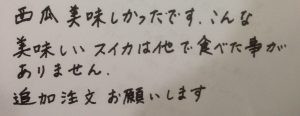 西瓜美味しかったです.こんな
美味しいスイカは他で食べた事が
ありません.
追加注文お願いします